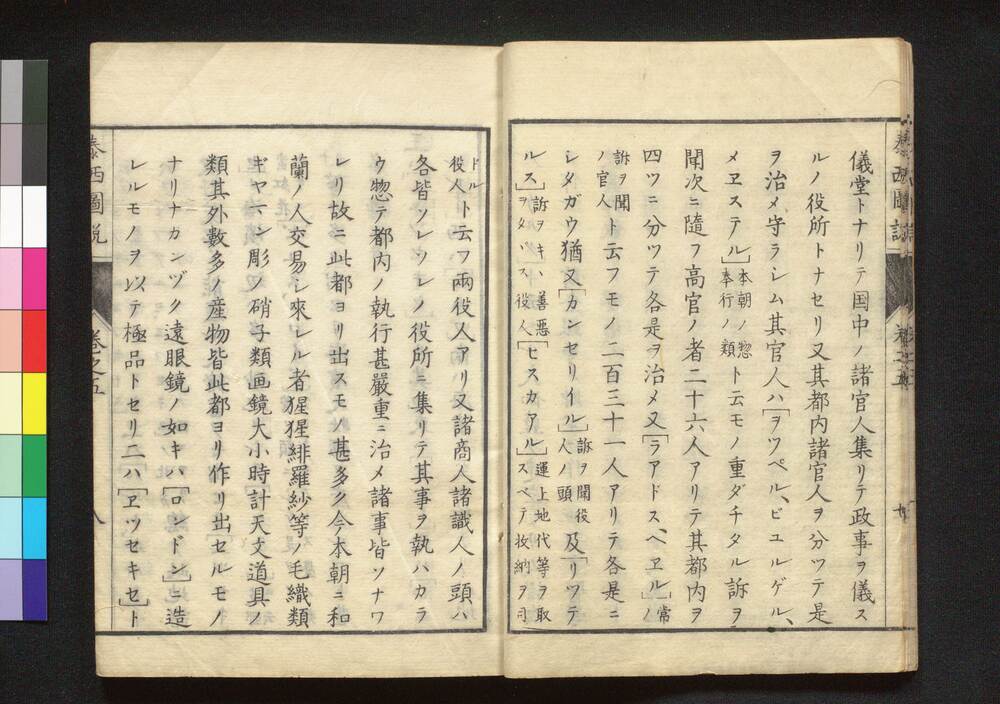 儀堂トナリテ国中ノ諸官人集リテ政事ヲ儀ス
ルノ役所トナセリ又其都内諸官人ヲ分ツテ是
ヲ治メ守ラシム其官人ハ[ヲツペル、ビユルゲル、
メヱステル]本朝ノ惣奉行ノ類ト云モノ重ダチタル訴ヲ
聞次ニ隨フ高官ノ者二十六人アリテ其都内ヲ
四ツニ分ツテ各是ヲ治メ又[ラアドス、ヘヱル]常ノ
訴ヲ聞ノ官人ト云フモノ二百三十一人アリテ各是ニ
シタガウ猶又[カンセリイル]訴ヲ聞役人ノ頭及[リツテ
ルス]訴ヲキヽ善悪ヲタヾス役人[ヒスカアル]運上地代等ヲ取スベテ收納ヲ司
ドル役人ト云フ兩役人アリ又諸商人諸識人ノ頭ハ
各皆ソレソレノ役所ニ集リテ其事ヲ執ハカラ
ウ惣テ都内ノ執行甚嚴重ニ治メ諸事皆ソナワ
レリ故ニ此都ヨリ出スモノ甚多ク今本朝ニ和
蘭ノ人交易シ來レル者猩猩緋羅紗等ノ毛織類
ギヤマン彫ノ硝子類画鏡大小時計天文道具ノ
類其外數多ノ産物皆此都ヨリ作リ出セルモノ
ナリナカンヅク遠眼鏡ノ如キハ[ロンドン]ニ造
レルモノヲ以テ極品トセリ二ハ[ヱツセキセ]ト
泰西圖説
卷之五
八